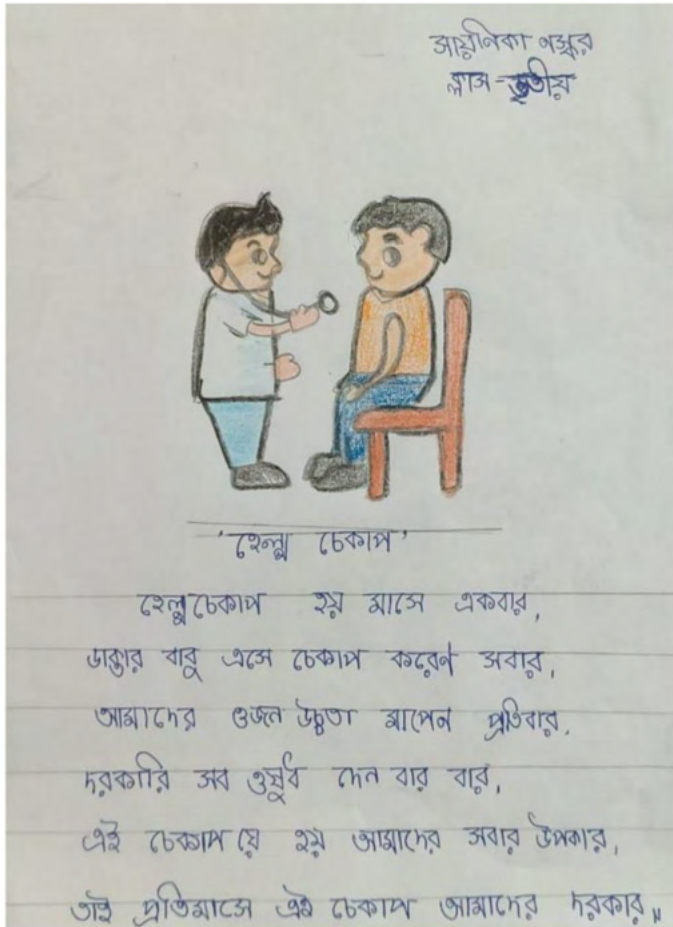 সায়নিকা নস্কর
ক্লাস-তৃতীয়
'হেল্থ চেকাপ'
হেল্থচেকাপ হয় মাসে একবার,
ডাক্তার বাবু এসে চেকাপ করেন সবার,
আমাদের ওজন উচ্চতা মাপেন প্রতিবার,
দরকারি সব ওষুধ দেন বার বার,
এই চেকাপ য়ে হয় আমাদের সবার উপকার,
তাই প্রতিমাসে এই চেকাপ আমাদের দরকার॥